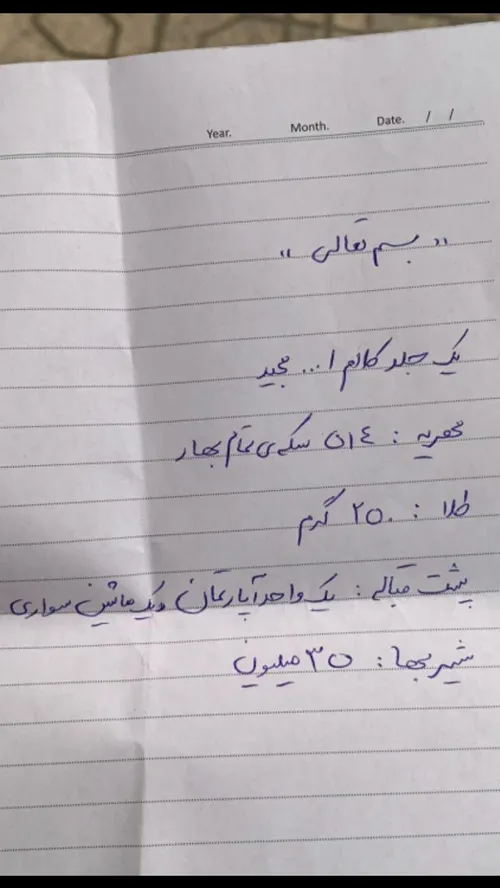 Year. Month. Date. / /
« بسم تعالی »
یک جلد کلام ا... مجید
مهریه : ۵۱۴ سکه‌ی تمام بهار
طلا : ۲۵۰ گرم
پشت قبالی : یک واحد آپارتمان و یک ماشین سواری
شیربها : ۳۵ میلیون